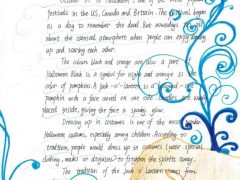 October 31 is Halloween, one of the most popular
festivals in the US, Canada and Britain. The festival began
as a day to remember the dead. But nowadays it's all
about the carnival atmosphere when people can enjoy dressing
up and scaring each other.
The colours black and orange are also a part
Halloween. Black is a symbol for night and orange is the
color of pumpkins. A jack-o'-lantern is a
pumpkin with a face carved on one side. Candles are usually
placed inside, giving the face a spooky glow.
Dressing up in costumes is one of the most popular
Halloween customs, especially among children. According to
tradition, people would dress up in costumes (wear special
clothing, masks or disguises) to frighten the spirits away.
The tradition of the Jack o' Lantern comes from